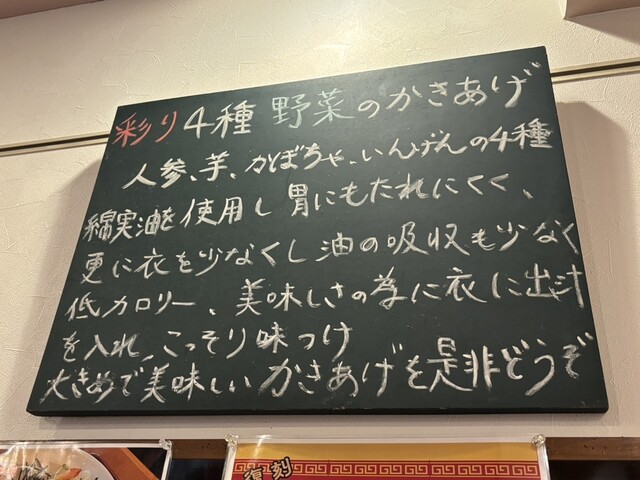 彩り4種 野菜のかきあげ
人参、芋、かぼちゃ、いんげんの4種
綿実油を使用し 胃にもたれにくく、
更に衣を少なくし油の吸収も少なく
低カロリー、美味しさの為に衣に出汁
を入れ、こっそり味つけ
大きめで美味しいかきあげを是非どうぞ
復刻